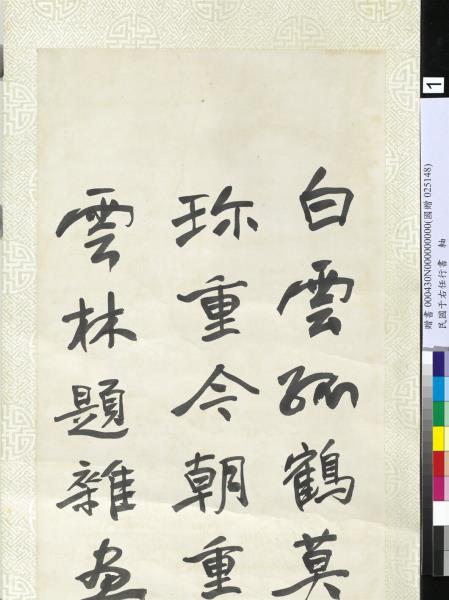 白雲孤鶴莫
珍重今朝重
雲林題雜畫
1
贈書 000430N000000000(國贈 025148)
民國于右任行書 軸